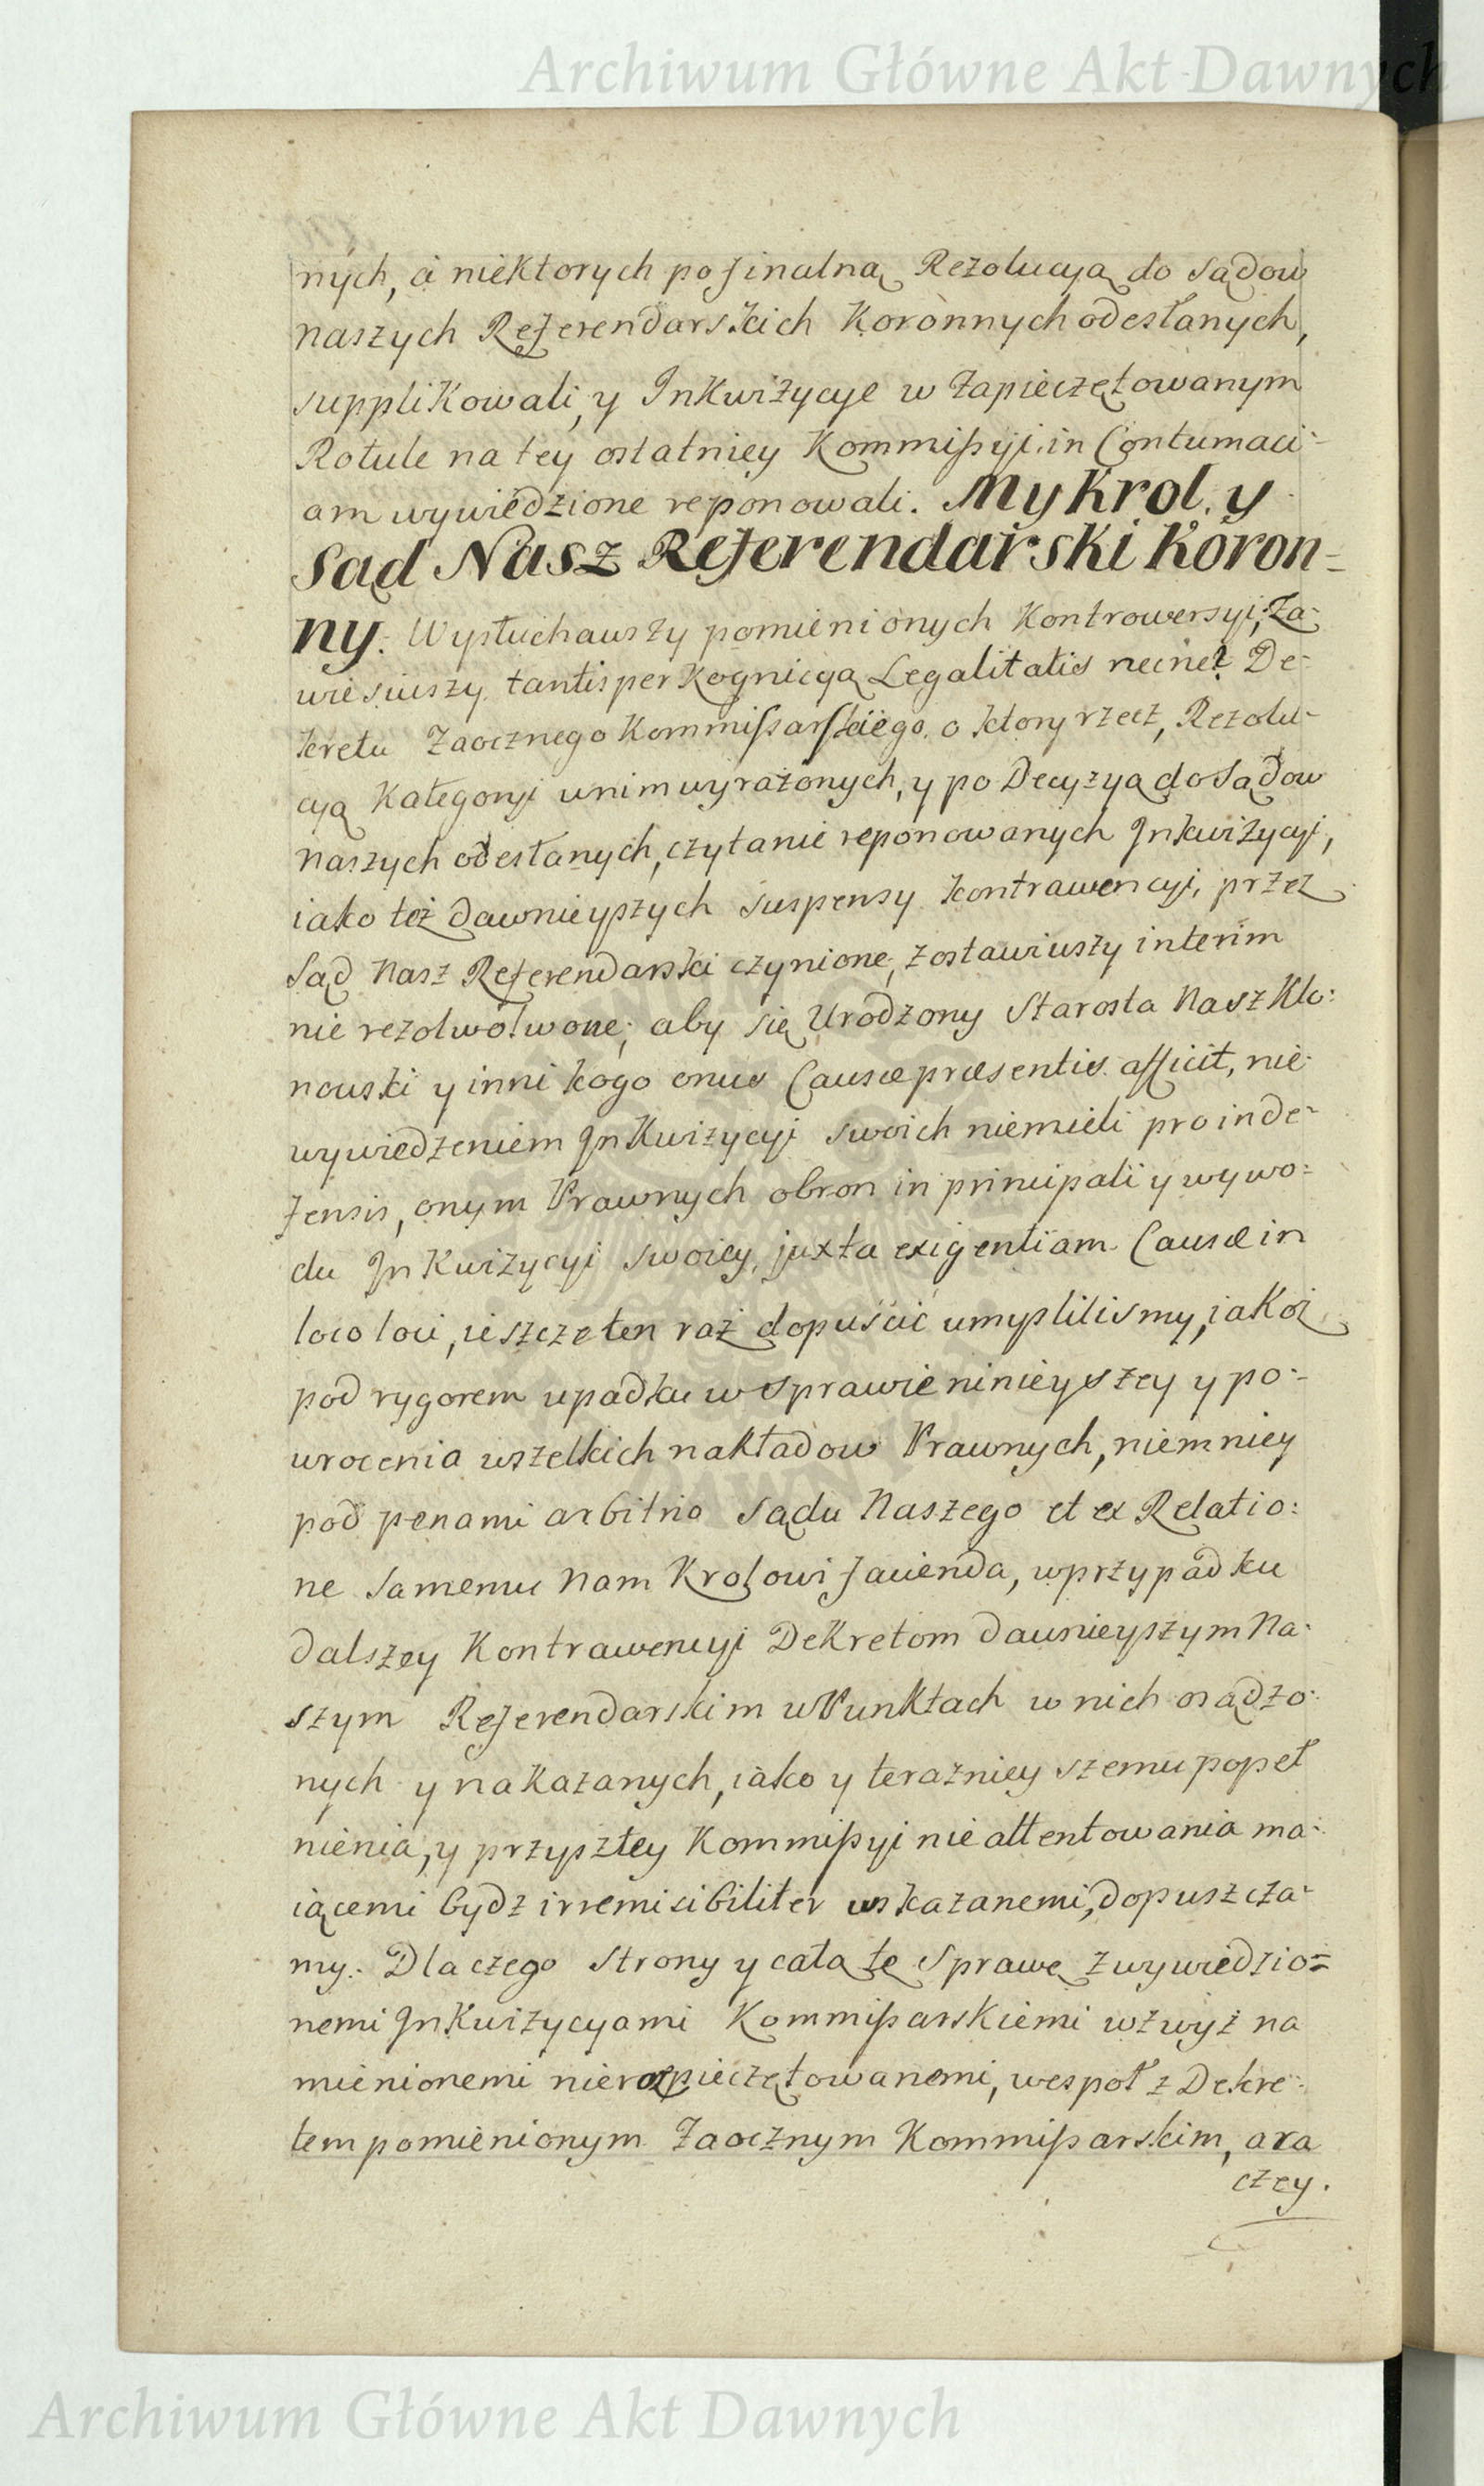 Archiwum Główne Akt Dawnych
nych, a niektorych po finalną Rezolucyą do Sądow
naszych Referendarskich Koronnych odesłanych,
supplikowali, y Inkwizycye w Zapieczętowanym
Rotule na tey ostatniey Kommissyi in Contumaci-
am wywiedzione reponowali. My Krol y
Sąd Nasz Referendarski Koron=
ny. Wysłuchawszy pomienionych Kontrowersyi, Za-
wiesiwszy tantisper Kognicyą Legalitatis necne? De-
kretu Zaocznego Kommissarskiego, o ktory rzecz, Rezolu-
cyą Kategoryi w nim wyrażonych, y po Decyzyą do Sądow
naszych odesłanych, czytanie reponowanych Inkwizycyi,
iako też dawnieyszych suspensy kontrawencyi, przez
Sąd Nasz Referendarski czynione, zostawiwszy interim
nie rezolwowone; aby się Urodzony Starosta Nasz Klo:
nowski y inni kogo onus Causæ præsentis afficit, nie
wywiedzeniem Inkwizycyi swoich niemieli pro inde-
fensis, onym Prawnych obron in principali y wywo-
du Inkwizycyi swoiey, juxta exigentiam Causæ in
loco loci, ieszcze ten raz dopuścić umyslilismy, jakoż
pod rygorem upadku w Sprawie ninieyszey y po-
wrocenia wszelkich nakładow Prawnych, niemniey
pod penami arbitrio Sądu Naszego et ex Relatio:
ne Samemu Nam Krolowi facienda, w przypadku
dalszey Kontrawencyi Dekretom dawnieyszym Na-
szym Referendarskim w Punktach w nich osądzo-
nych y nakazanych, iako y teraznieyszemu popeł
nienia, y przyszłey Kommissyi nie attentowania ma-
iącemi bydz irremisibiliter wskazanemi, dopuszcza-
my. Dlaczego Strony y cała tę Sprawę z wywiedzio=
nemi Inkwizycyami Kommissarskiemi wzwyż na
mienionemi nierozpieczętowanemi, wespoł z Dekre-
tem pomienionym Zaocznym Kommissarskim, a ra
czey.
Archiwum Główne Akt Dawnych